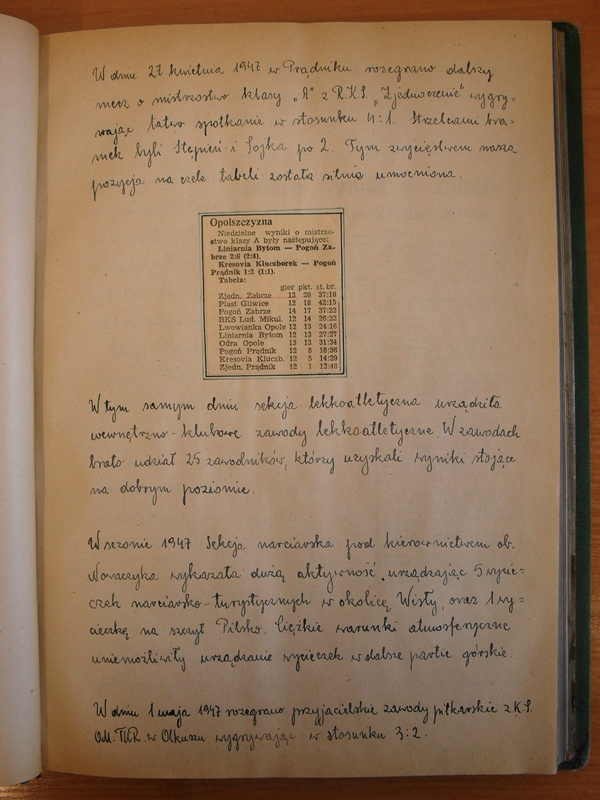 W dniu 27 kwietnia 1947 w Prądniku rozegrano dalszy
mecz o mistrzostwo klasy „A" z R.K.S. „Zjednoczenie" wygry-
wając łatwo spotkanie w stosunku 4:1. Strzelcami bra-
mek byli Stępień i Sojka po 2. Tym zwycięstwem nasza
pozycja na czele tabeli została silnie umocniona.
Opolszczyzna
Niedzielne wyniki o mistrzo-
stwo klasy A były następujące:
Liniarnia Bytom — Pogoń Za-
brze 2:6 (2:4).
Kresovia Kluczborek — Pogoń
Prądnik 1:2 (1:1).
Tabela:
gier pkt. st. br.
Zjedn. Zabrze 13 20 37:18
Piast Gliwice 12 18 42:15
Pogoń Zabrze 14 17 37:22
RKS Lud. Mikul. 12 14 26:22
Lwowianka Opole 12 13 24:16
Liniarnia Bytom 12 13 27:27
Odra Opole 13 13 31:34
Pogoń Prądnik 12 8 18:36
Kresovia Kluczb. 12 5 14:29
Zjedn. Prądnik 12 1 12:48
W tym samym dniu sekcja lekkoatletyczna urządziła
wewnętrzno-klubowe zawody lekkoatletyczne. W zawodach
brało udział 25 zawodników, którzy uzyskali wyniki stojące
na dobrym poziomie.
W sezonie 1947 Sekcja narciarska pod kierownictwem ob.
Nowaczyka wykazała dużą aktywność, urządzając 5 wycie-
czek narciarsko-turystycznych w okolicę Wisły, oraz 1 wy-
cieczkę na szczyt Pilsko. Ciężkie warunki atmosferyczne
uniemożliwiły urządzanie wycieczek w dalsze partie górskie.
W dniu 1 maja 1947 rozegrano przyjacielskie zawody piłkarskie z K.S.
OM.TUR. w Olkuszu wygrywając w stosunku 3:2.